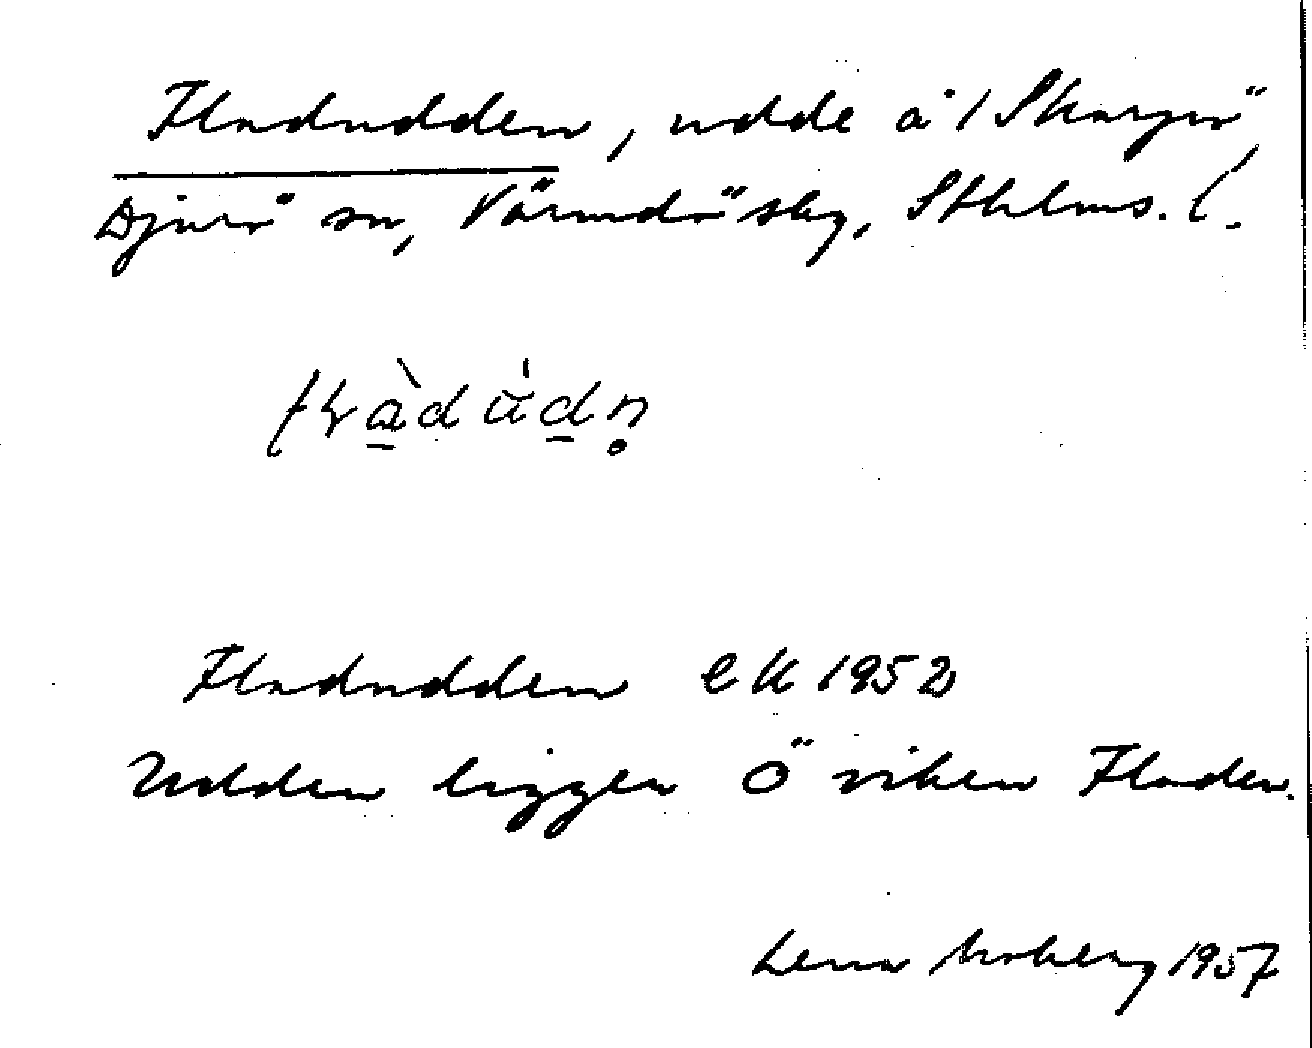 Fladudden, udde å Skarpö,
Djurö sn, Värmdö skg, Sthlms. l.
Fladudden ek 1952
Udden ligger Ö viken Fladen.
Lena Moberg 1957